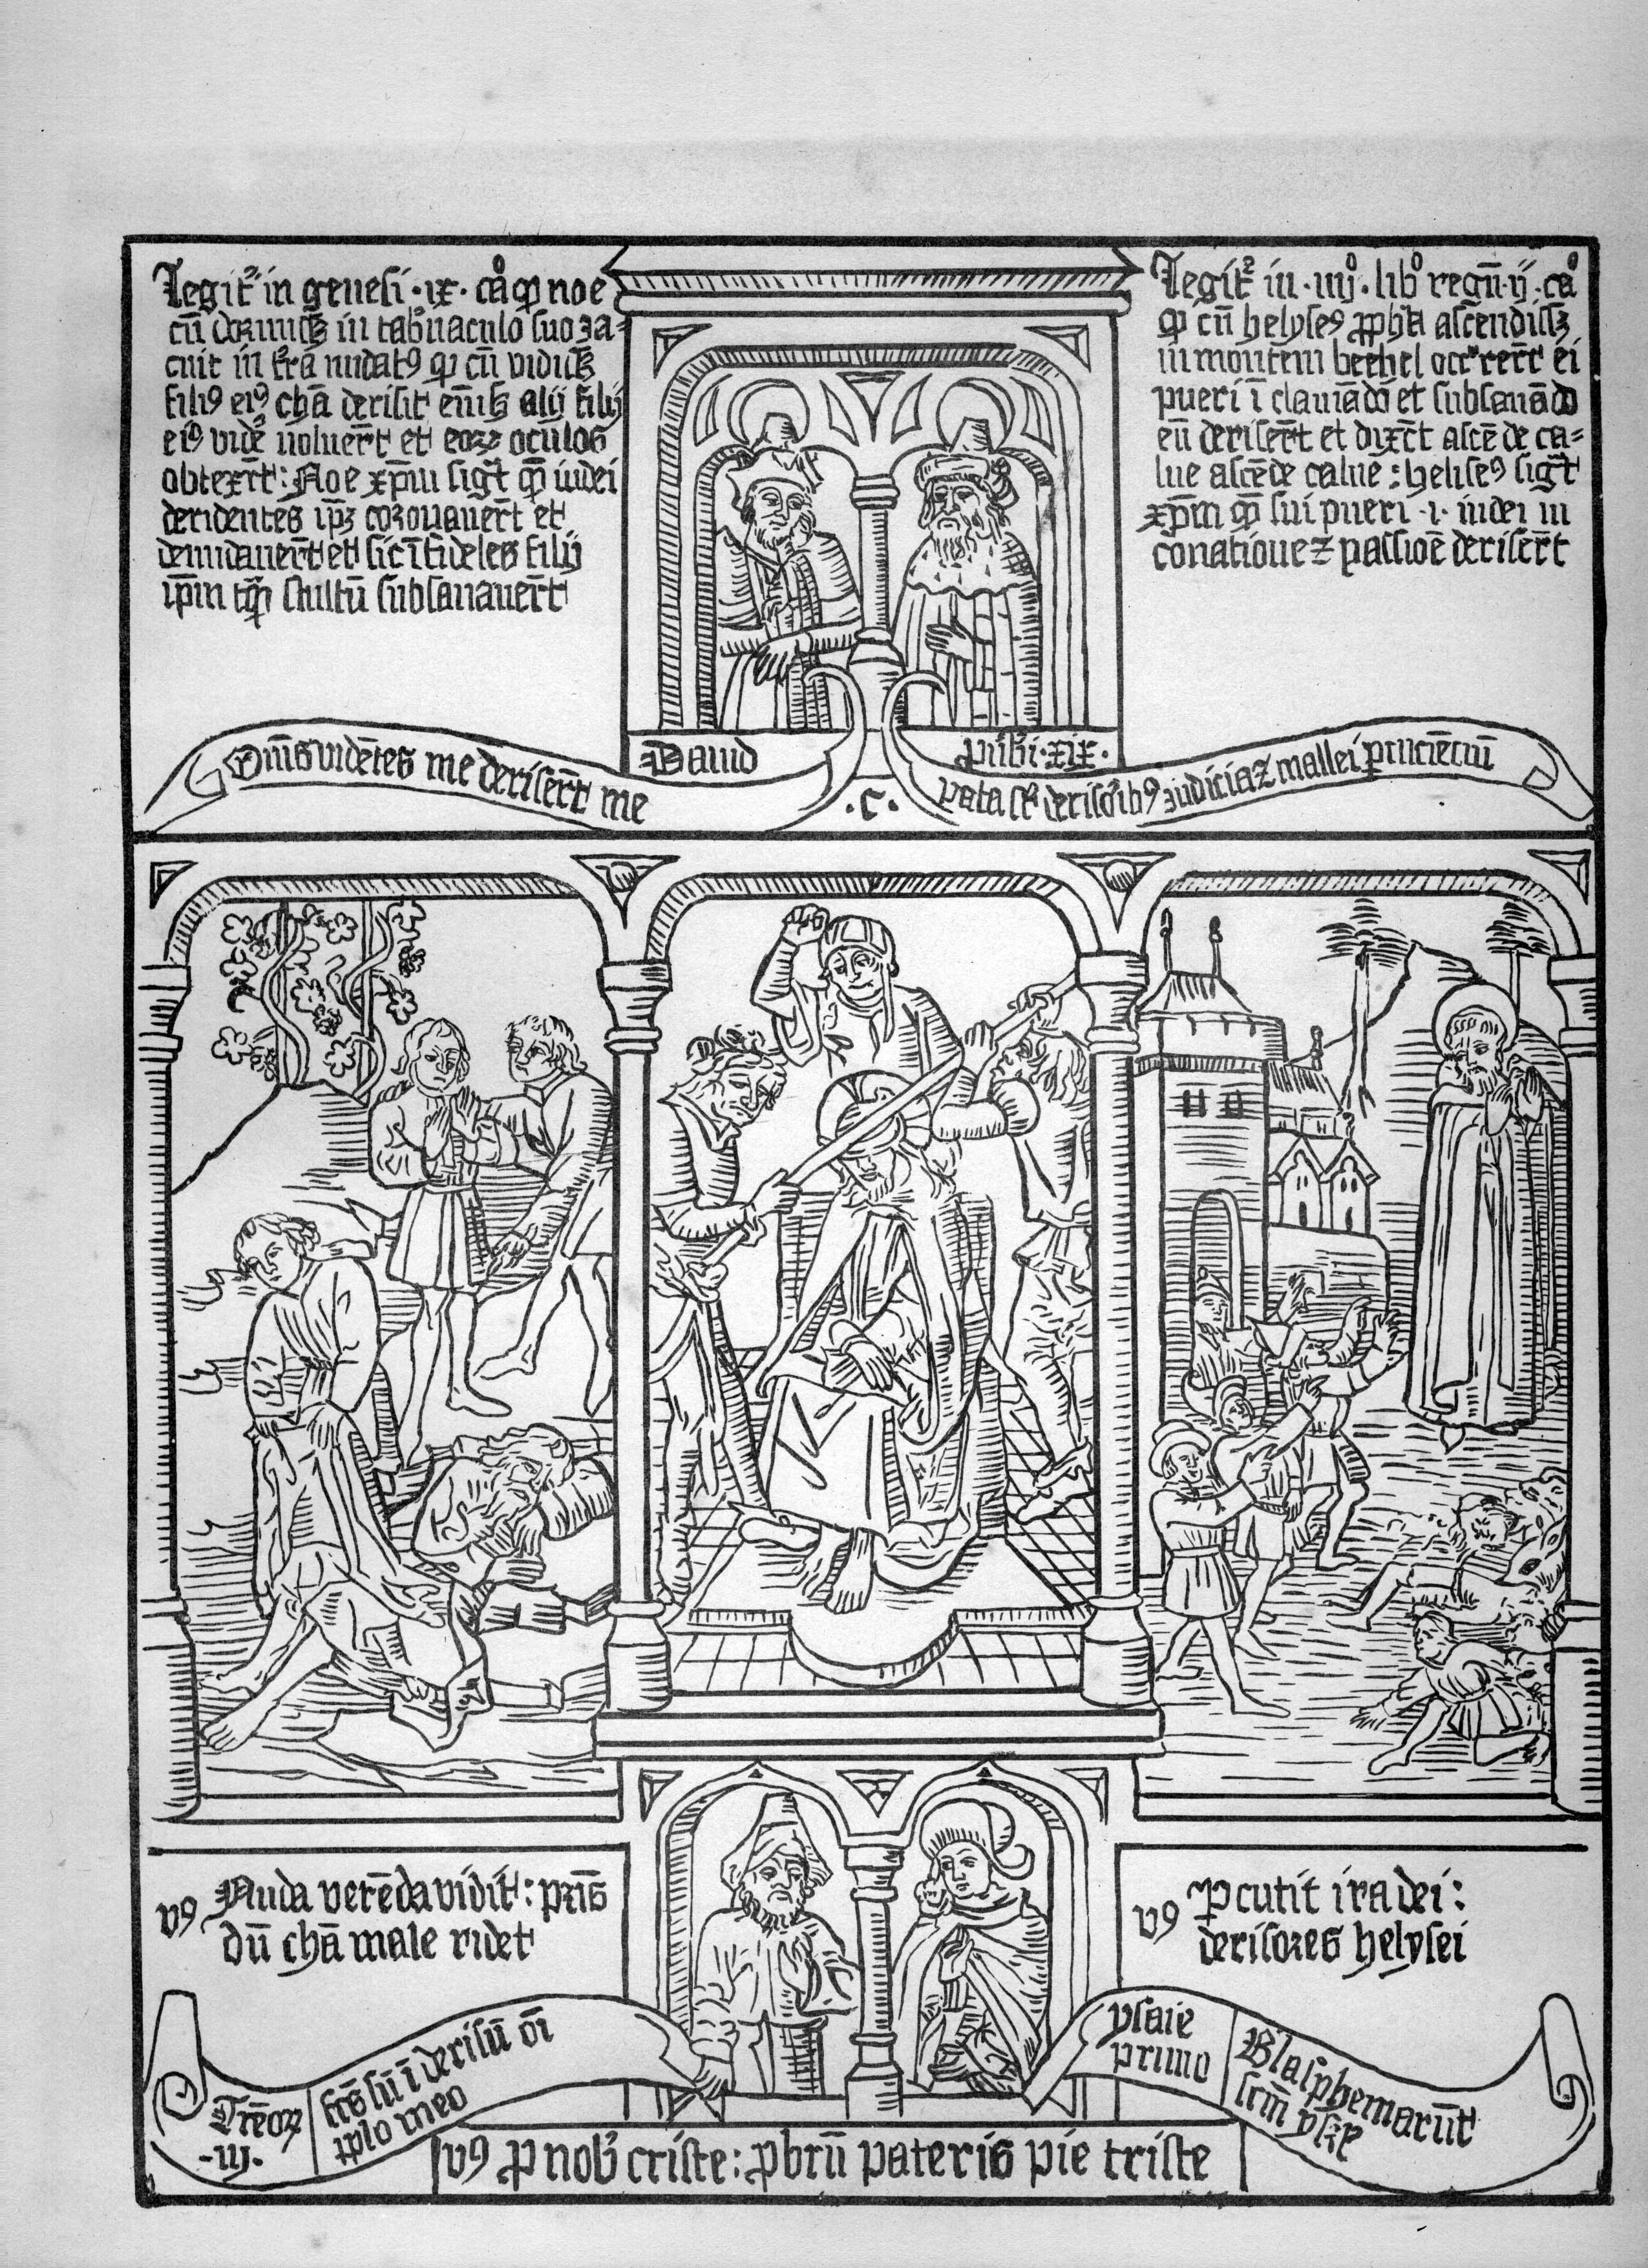 Legit᷑ in genesi ·ix· caͦ ꝙ noe
cū dormiss₃ in tab᷑naculo suo ia⸗
cuit in t᷑ra nudatꝰ ꝙ cū vidiss₃
filiꝰ eiꝰ chā derisit em̄ sꝫ alij filij
eiꝰ vide᷑ noluer̄t et eoꝝ oculos
obtexr̄t : Noe xp̄m sigt̄ qm̄ iudei
deridentes ip̄ꝫ coronauer̄t et
denudauer̄t et sic īfideles filij
ip̄m tꝙ̄ stultū subsanauer̄t
Legit᷑ in ·iiijͦ· libͦ regū ·ij· caͦ
ꝙ cū helyseꝰ ꝓph᷑a ascendiss₃
in montem bethel occ᷑rer̄t ei
pueri ī clamādō et subsanādo
eū deriser̄t et dixr̄t ascē de ca⸗
lue ascēde calue : heliseꝰ sigt̄
xp̄m qm̄ sui pueri ·i· iudei in
coronatione ⁊ passioē deriser̄t
Om̄s vidētes me deriser̄t me
Dauid
puɓi·xix·
pata sr̄ derisoribꝰ iudicia ⁊ mallei ꝑcuciētiū
·c·
vꝰ Nuda verēda vidit : pr̄is
dū chā male ridet
vꝰ Ꝑcutit ira dei :
derisores helysei
Trēoꝝ
·iij·
fc̄s sū ī derisū oī
pplo meo
ysaie
primo
Blasphemarūt
scm̄ ysrl̄
vꝰ ꝓ nob᷑ criste : ꝓbrū pateris pie triste